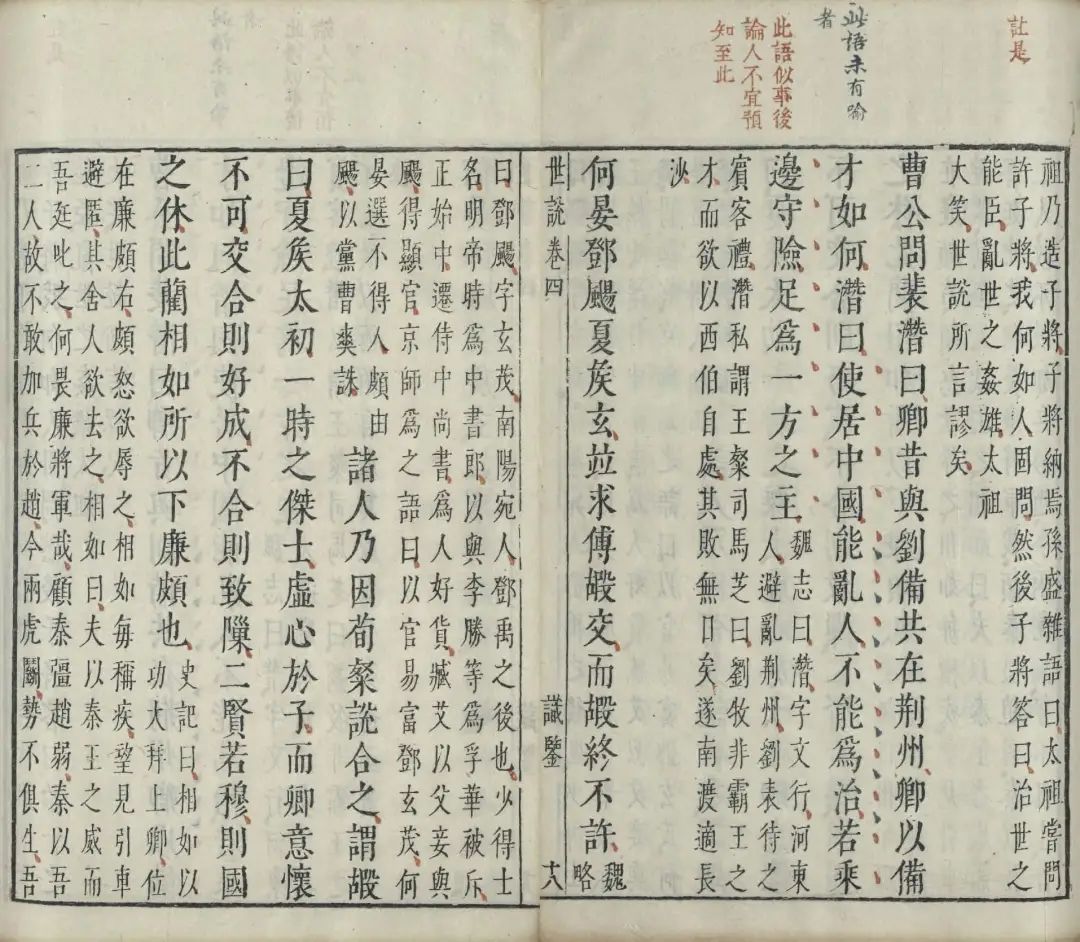 註是
此語未有喻
者
此語似事後
論人不宜預
知至此
祖乃造子將子將納焉孫盛雜語曰太祖嘗問
許子將我何如人固問然後子將答曰治世之
能臣亂世之姦雄太祖
大笑世說所言謬矣
曹公問裴潛曰卿昔與劉備共在荆州卿以備
才如何潛曰使居中國能亂人不能爲治若乘
邊守險足爲一方之主
魏志曰潛字文行河東
人避亂荆州劉表待之
賓客禮潛私謂王粲司馬芝曰劉牧非霸王之
才而欲以西伯自處其敗無日矣遂南渡適長
沙
何晏鄧颺夏矦玄並求傅嘏交而嘏終不許
魏
略
世說卷四 識鑒 十八
曰鄧颺字玄茂南陽宛人鄧禹之後也少得士
名明帝時爲中書郎以與李勝等爲孚華被斥
正始中遷侍中尚書爲人好貨臧艾以父妾與
颺得顯官京師爲之語曰以官易富鄧玄茂何
晏選不得人頗由
颺以黨曹爽誅
諸人乃因荀粲說合之謂嘏
曰夏矦太初一時之傑士虛心於子而卿意懷
不可交合則好成不合則致隟二賢若穆則國
之休此藺相如所以下廉頗也
史記曰相如以
功大拜上卿位
在廉頗右頗怒欲辱之相如每稱疾望見引車
避匿其舍人欲去之相如曰夫以秦王之威而
吾廷叱之何畏廉將軍哉顧秦彊趙弱秦以吾
二人故不敢加兵於趙今兩虎鬭勢不俱生吾